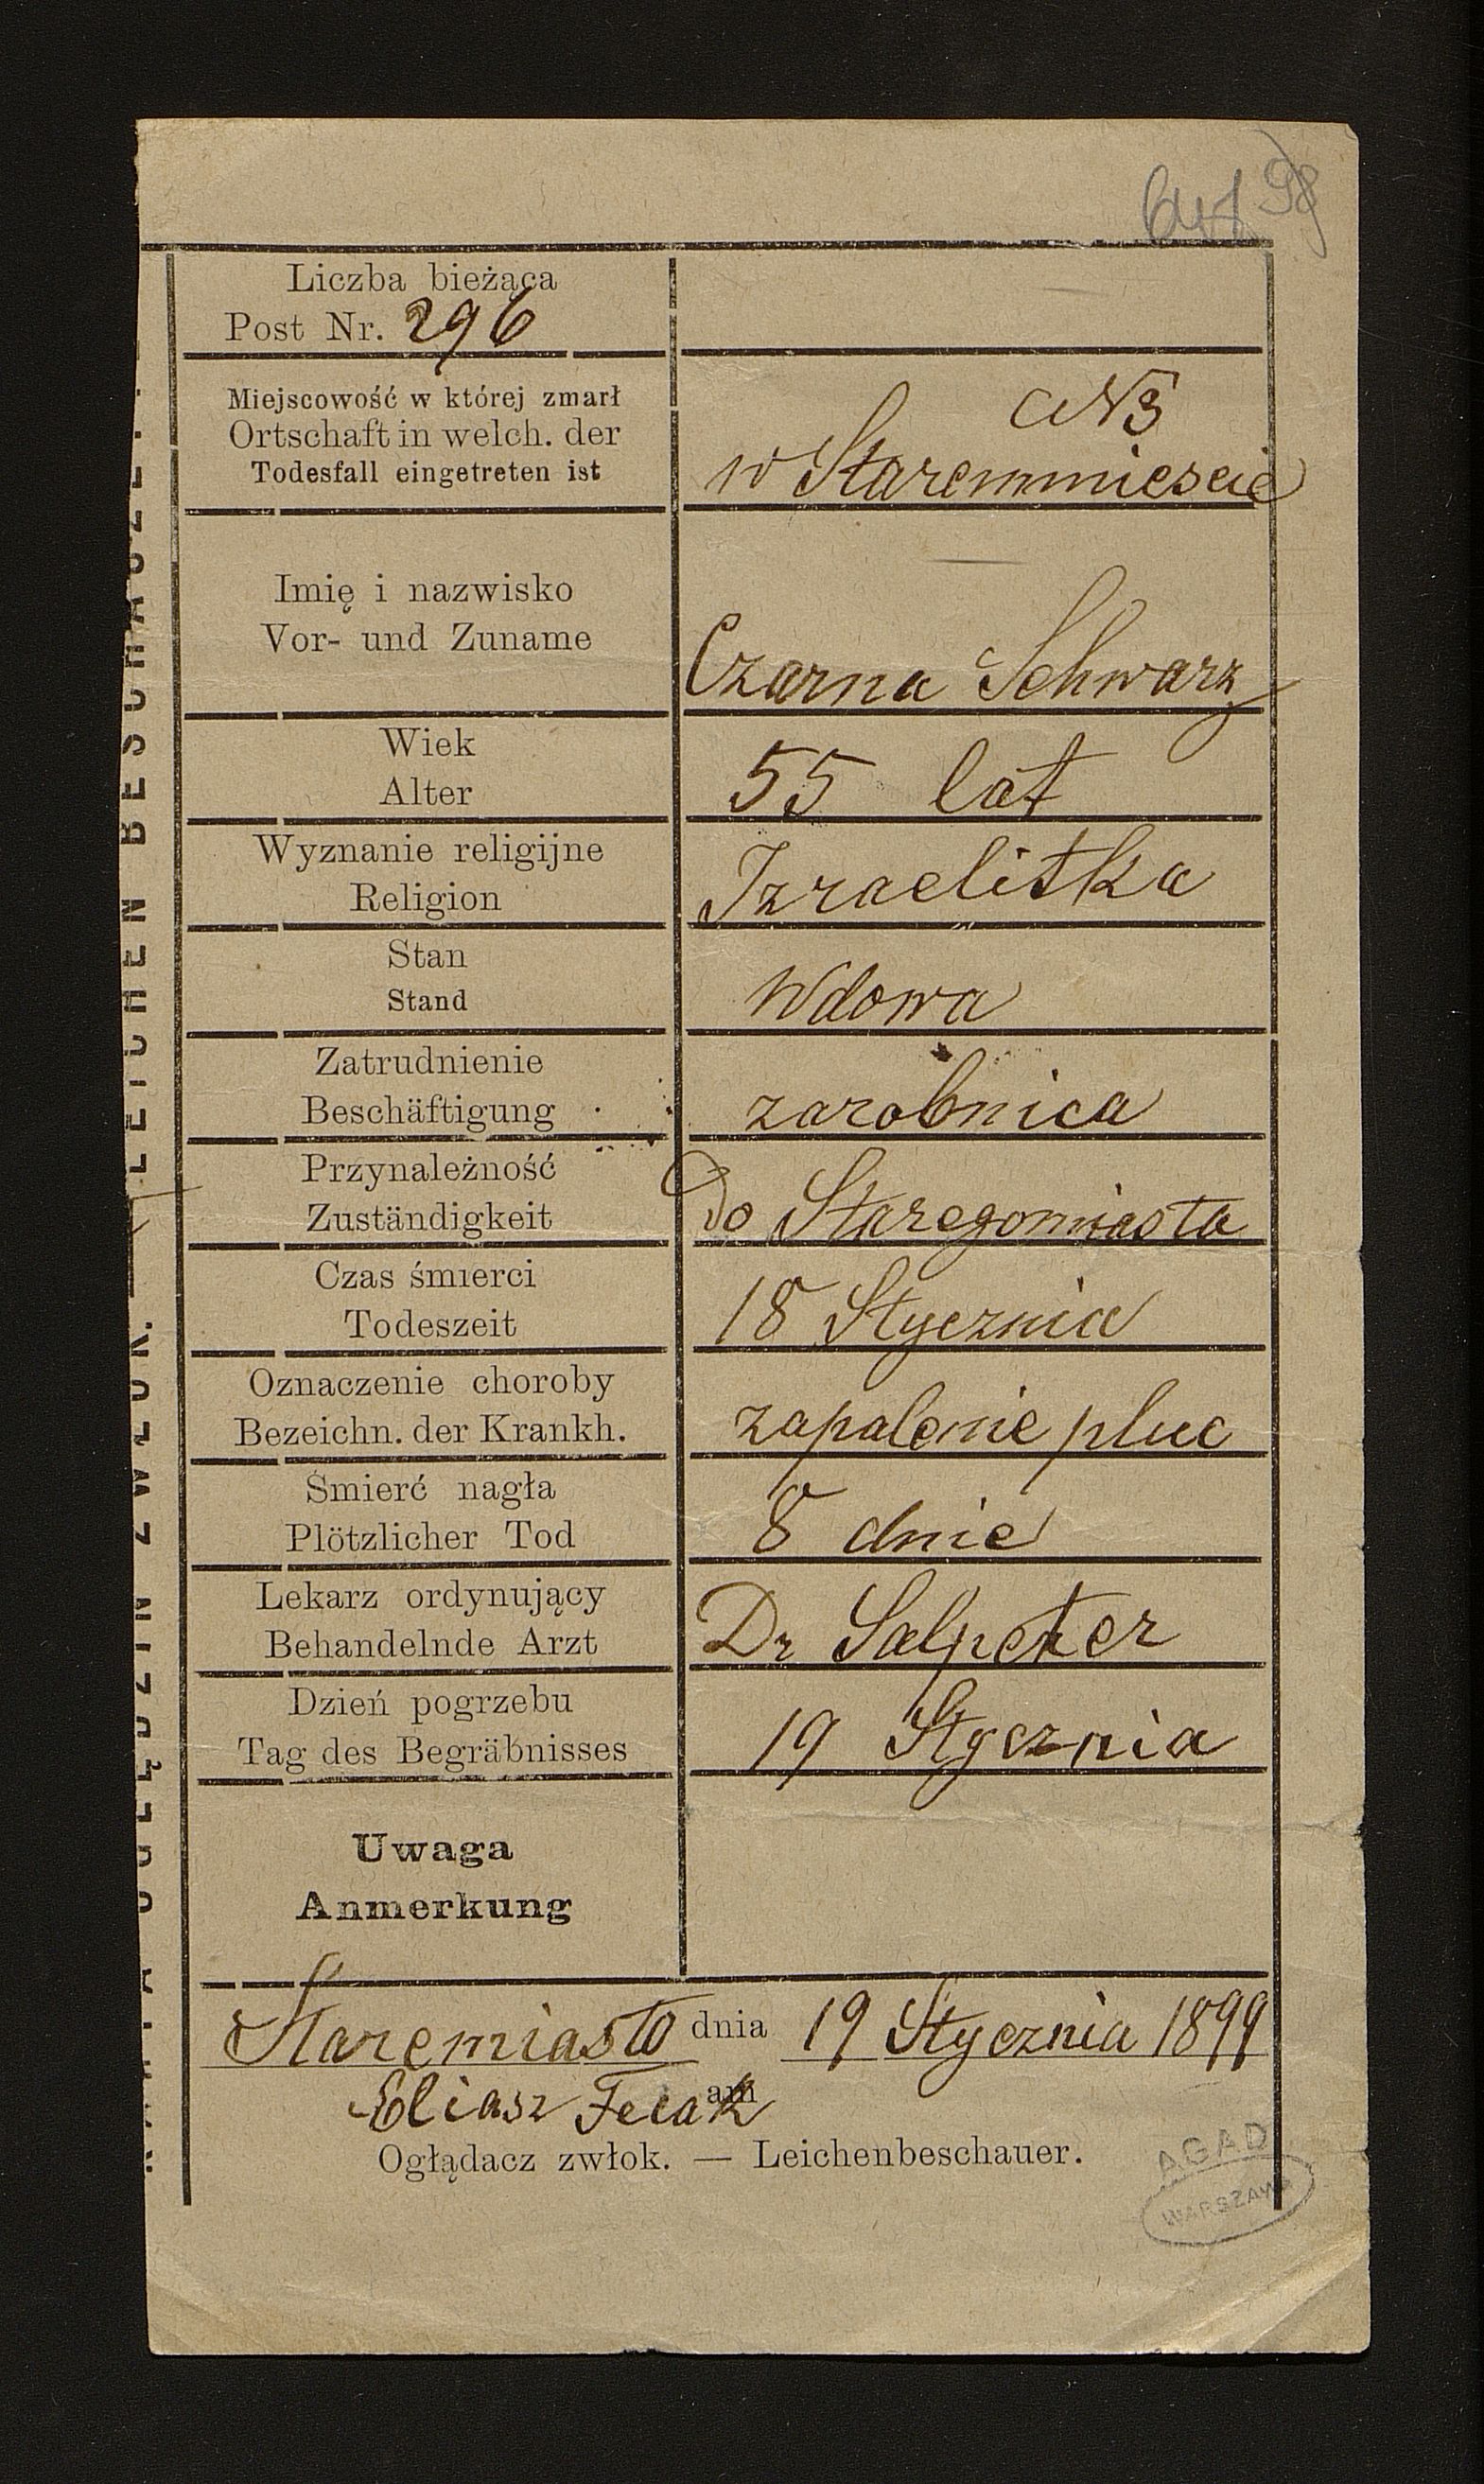 98
Liczba bieżąca
Post Nr. 296
Miejscowość w której zmarł
Ortschaft in welch. der
Todesfall eingetreten ist
N3
w Staremmieście
Imię i nazwisko
Vor- und Zuname
Czarna Schwarz
Wiek
Alter
55 lat
Wyznanie religijne
Religion
Izraelitka
Stan
Stand
Wdowa
Zatrudnienie
Beschäftigung
zarobnica
Przynależność
Zuständigkeit
Do Staregomiasta
Czas śmierci
Todeszeit
18 Stycznia
Oznaczenie choroby
Bezeichn. der Krankh.
zapalenie pluc
Śmierć nagła
Plötzlicher Tod
8 dnie
Lekarz ordynujący
Behandelnde Arzt
Dr Salpeter
Dzień pogrzebu
Tag des Begräbnisses
19 Stycznia
Uwaga
Anmerkung
Staremiasto dnia 19 Stycznia 1899
am
Eliasz Fecak
Oglądacz zwłok. — Leichenbeschauer.
AGAD
WARSZAWA
OGLĘDZIN ZWŁOK. — LEICHEN BESCHAUZET